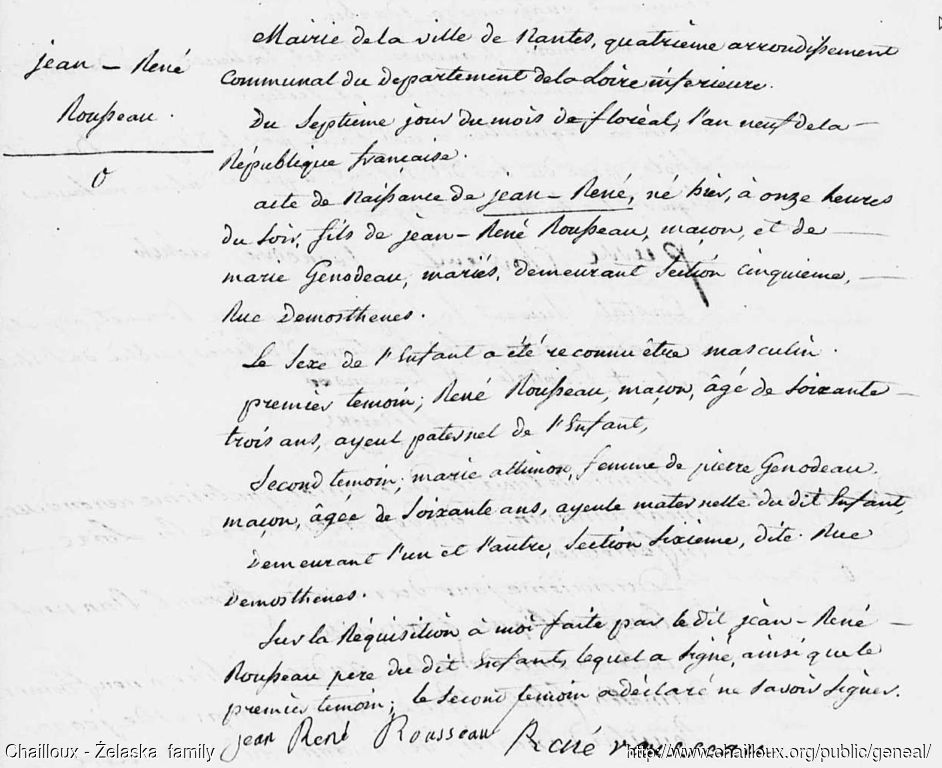 jean - René
Rousseau.
Mairie de la ville de Nantes, quatrième arrondissement
Communal du departement de la Loire inferieure.
Du Septième jour du mois de floréal, l'an neuf de la
République française.
acte de Naissance de jean - René, né hier, à onze heures
du soir, fils de jean - René Rousseau, maçon, et de
marie Genodeau, mariés, demeurant Section Cinquieme,
Rue demosthenes.
Le Sexe de l'Enfant a été reconnu être masculin.
premier temoin; René Rousseau, maçon, âgé de Soixante
trois ans, ayeul paternel de l'Enfant,
Second temoin; marie allimon, femme de pierre Genodeau.
maçon, âgée de Soixante ans, ayeule maternelle du dit Enfant,
demeurant l'un et l'autre, Section Sixieme, dite Rue
demosthenes.
Sur la Réquisition à moi faite par le dit jean - René
Rousseau pere du dit Enfant, lequel a Signé, ainsi que le
premier temoin; le Second temoin a déclaré ne savoir Signer.
jean René Rousseau René
Chailloux - Żelaska family http://www.chailloux.org/public/geneal/